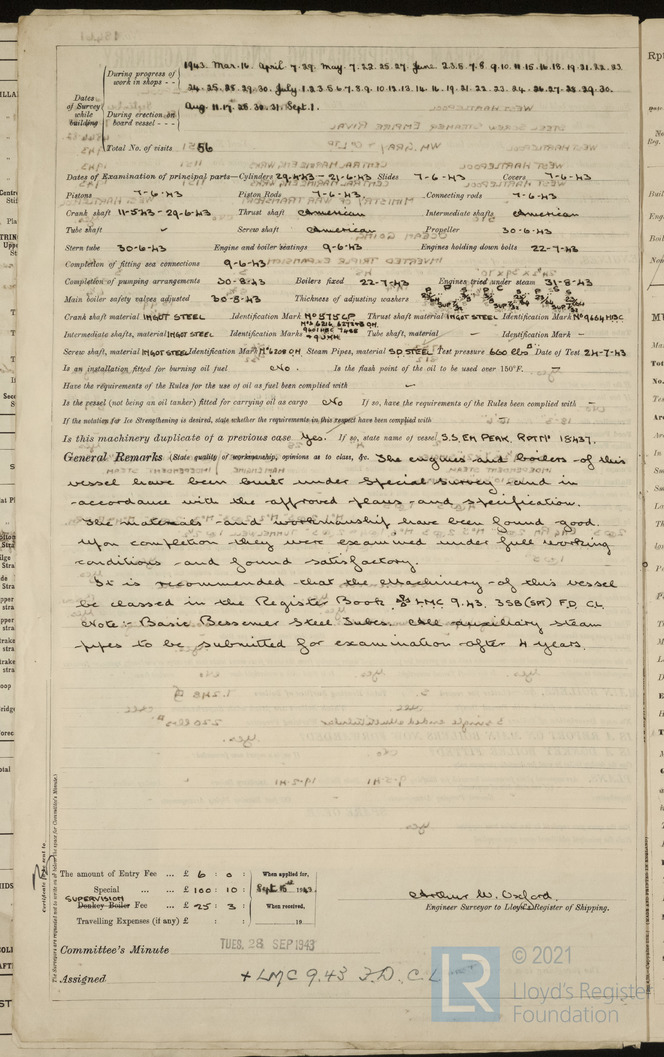 1943. Mar. 16. April 7. 29. May. 7. 22. 25. 27. June 2. 3. 5. 7. 8. 9. 10. 11. 15. 16. 18. 19. 21. 22. 23.
During progress of work in shops - -
24. 25. 28. 29. 30. July 1. 2. 3. 5. 6. 7. 8. 9. 10. 12. 13. 14. 16. 19. 21. 22. 23. 24. 26. 27. 28. 29. 30.
Dates of Survey while building
During erection on board vessel - - -
Aug. 11. 17. 28. 30. 31. Sept. 1.
Total No. of visits 56
Dates of Examination of principal parts—Cylinders 29-4-43 – 21-6-43 Slides 7-6-43 Covers 7-6-43
Pistons 7-6-43 Piston Rods 7-6-43 Connecting rods 7-6-43
Crank shaft 11-5-43 – 29-6-43 Thrust shaft American Intermediate shafts American
Tube shaft - Screw shaft American Propeller 30-6-43
Stern tube 30-6-43 Engine and boiler seatings 9-6-43 Engines holding down bolts 22-7-43
Completion of fitting sea connections 9-6-43
Completion of pumping arrangements 30-8-43 Boilers fixed 22-7-43 Engines tried under steam 31-8-43
Main boiler safety valves adjusted 30-8-43 Thickness of adjusting washers
Crank shaft material INGOT STEEL Identification Mark Thrust shaft material INGOT STEEL Identification Mark
Intermediate shafts, material INGOT STEEL Identification Marks Tube shaft, material - Identification Mark -
Screw shaft, material INGOT STEEL Identification Mark No 6208 OH Steam Pipes, material S.D. STEEL Test pressure 660 lbs Date of Test 24-7-43
Is an installation fitted for burning oil fuel No. Is the flash point of the oil to be used over 150°F. -
Have the requirements of the Rules for the use of oil as fuel been complied with -
Is the vessel (not being an oil tanker) fitted for carrying oil as cargo No If so, have the requirements of the Rules been complied with -
If the notation for Ice Strengthening is desired, state whether the requirements in this respect have been complied with
Is this machinery duplicate of a previous case Yes. If so, state name of vessel S.S. EM PEAK. Rpt No 18437.
General Remarks (State quality of workmanship, opinions as to class, &c. The engines and boilers of this
vessel have been built under Special Survey and in
accordance with the approved plans and specification.
The materials and workmanship have been found good.
Upon completion they were examined under full working
conditions and found satisfactory.
It is recommended that the Machinery of this vessel
be classed in the Register Book, LMC 9.43. 3SB(SPT) F.D. CL.
Note:- Basic Bessemer Steel Tubes. All auxiliary steam
pipes to be submitted for examination after 4 years.
Certificate to be sent to
The amount of Entry Fee ... £ 6 : 0 : When applied for,
Special ... ... £ 100 : 10 : Sept. 1943
SUPERVISION
Donkey Boiler Fee ... £ 25 : 3 : When received,
Travelling Expenses (if any) £ : : 19
Arthur W. Oxford.
Engineer Surveyor to Lloyd's Register of Shipping.
Committee's Minute TUES. 28 SEP 1943
Assigned + LMC 9.43 F.D. C.L
© 2021
Lloyd's Register
Foundation